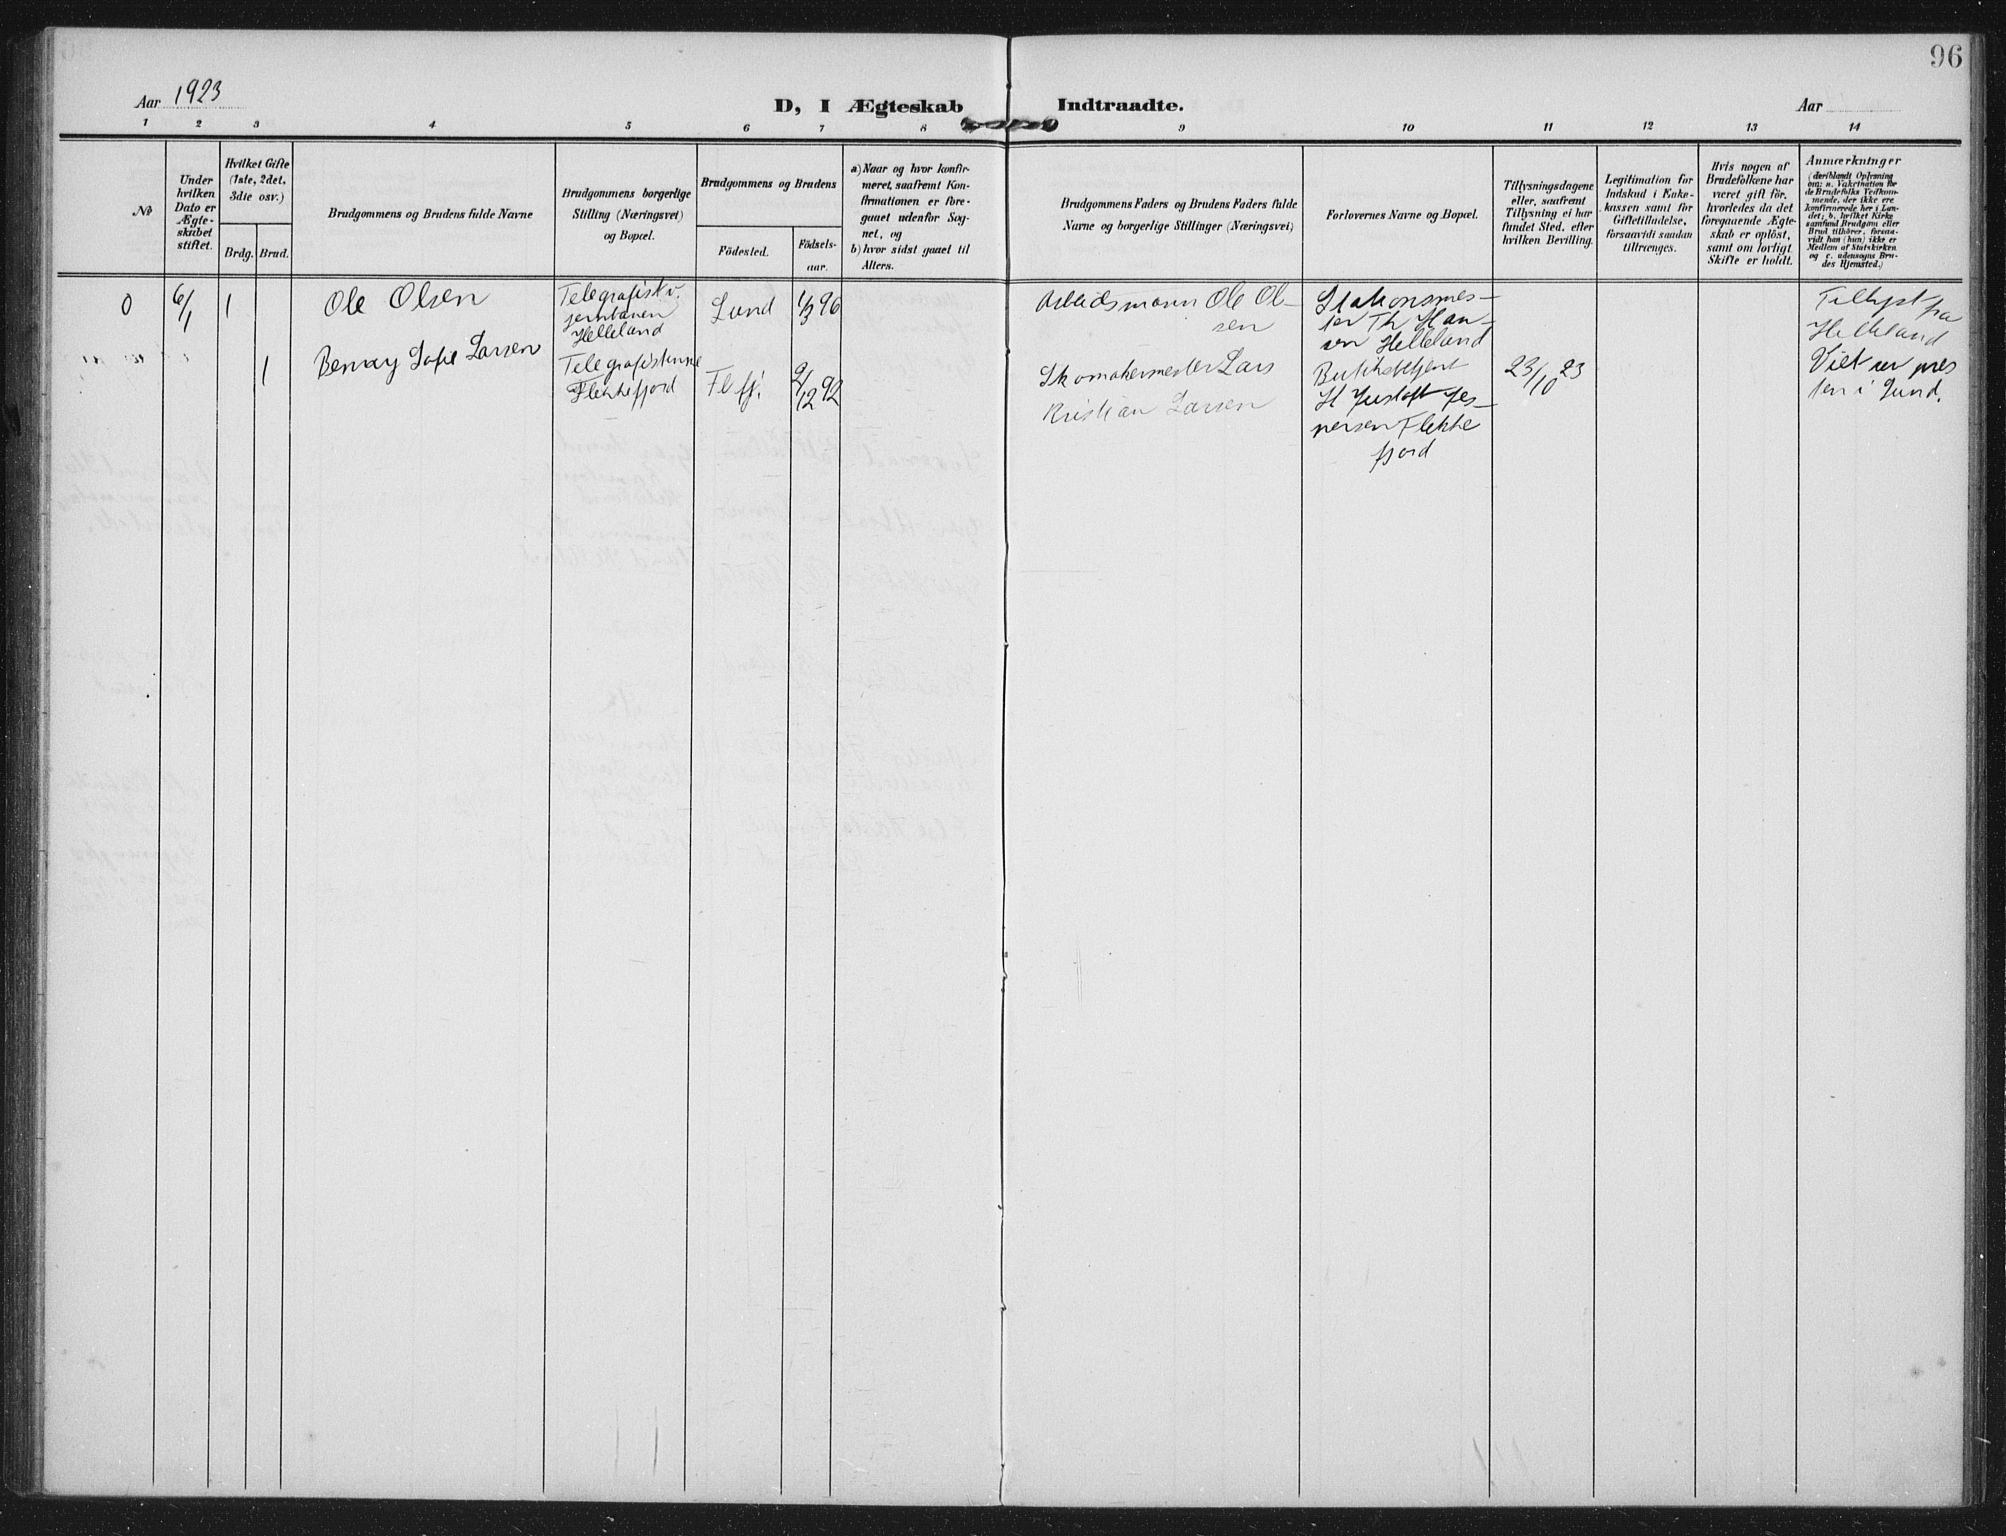 96
Aar 1923
D, I Ægteskab Indtraadte.
Aar
1 2 3 4 5 6 7 8 9 10 11 12 13 14
No
Under hvilken Dato er Ægte-skabet stiftet.
Hvilket Gifte (1ste, 2det, 3die osv.)
Brdg. Brud.
Brudgommens og Brudens fulde Navne
Brudgommens borgerlige
Stilling (Næringsvei)
og Bopæl.
Brudgommens og Brudens
Födested.
Födsels-
aar.
a) Naar og hvor konfir-
meret, saafremt Kon-
firmationen er fore-
gaaet udenfor Sog-
net, og
b) hvor sidst gaaet til
Alters.
Brudgommens Faders og Brudens Faders fulde
Navne og borgerlige Stillinger (Næringsvei)
Forlovernes Navne og Bopæl.
Tillysningsdagene
eller, saafremt
Tillysning ei har
fundet Sted, efter
hvilken Bevilling.
Legitimation for
Indskud i Enke-
kassen samt for
Giftetilladelse,
forsaavidt saadan
tiltrænges.
Hvis nogen af
Brudefolkene har
været gift för,
hvorledes da det
foregaaende Ægte-
skab er oplöst,
samt om lovligt
Skifte er holdt.
Anmærkninger
(deriblandt Oplysning
om: a. Vakcination for
de Brudefolks Vedkom-
mende, der ikke ere
konfirmerede her i Lan-
det; b. hvilket Kirke
samfund Brudgom eller
Brud tilhörer, forsaa-
vidt han (hun) ikke er
Medlem af Statskirken
og c. udensogns Bru-
des Hjemsted.)
0
6/1
1
Ole Olsen
Telegrafist v.
jernbanen
Helleland
Lund
1/3 96
Arbeidsmann Ole Ol-
sen
Stationsmes-
ter Th. Han-
sen Helleland
Tillyst fra
Helleland
1
Benny Sofie Larsen
Telegrafistinne
Flekkefjord
Flfj.
9/12 92
Skomakermester Lars
Kristian Larsen
Butikkbetjent
H Gustaft Jes-
persen Flekke
fjord
23/10 23
Viet av pres
ten i Lund.